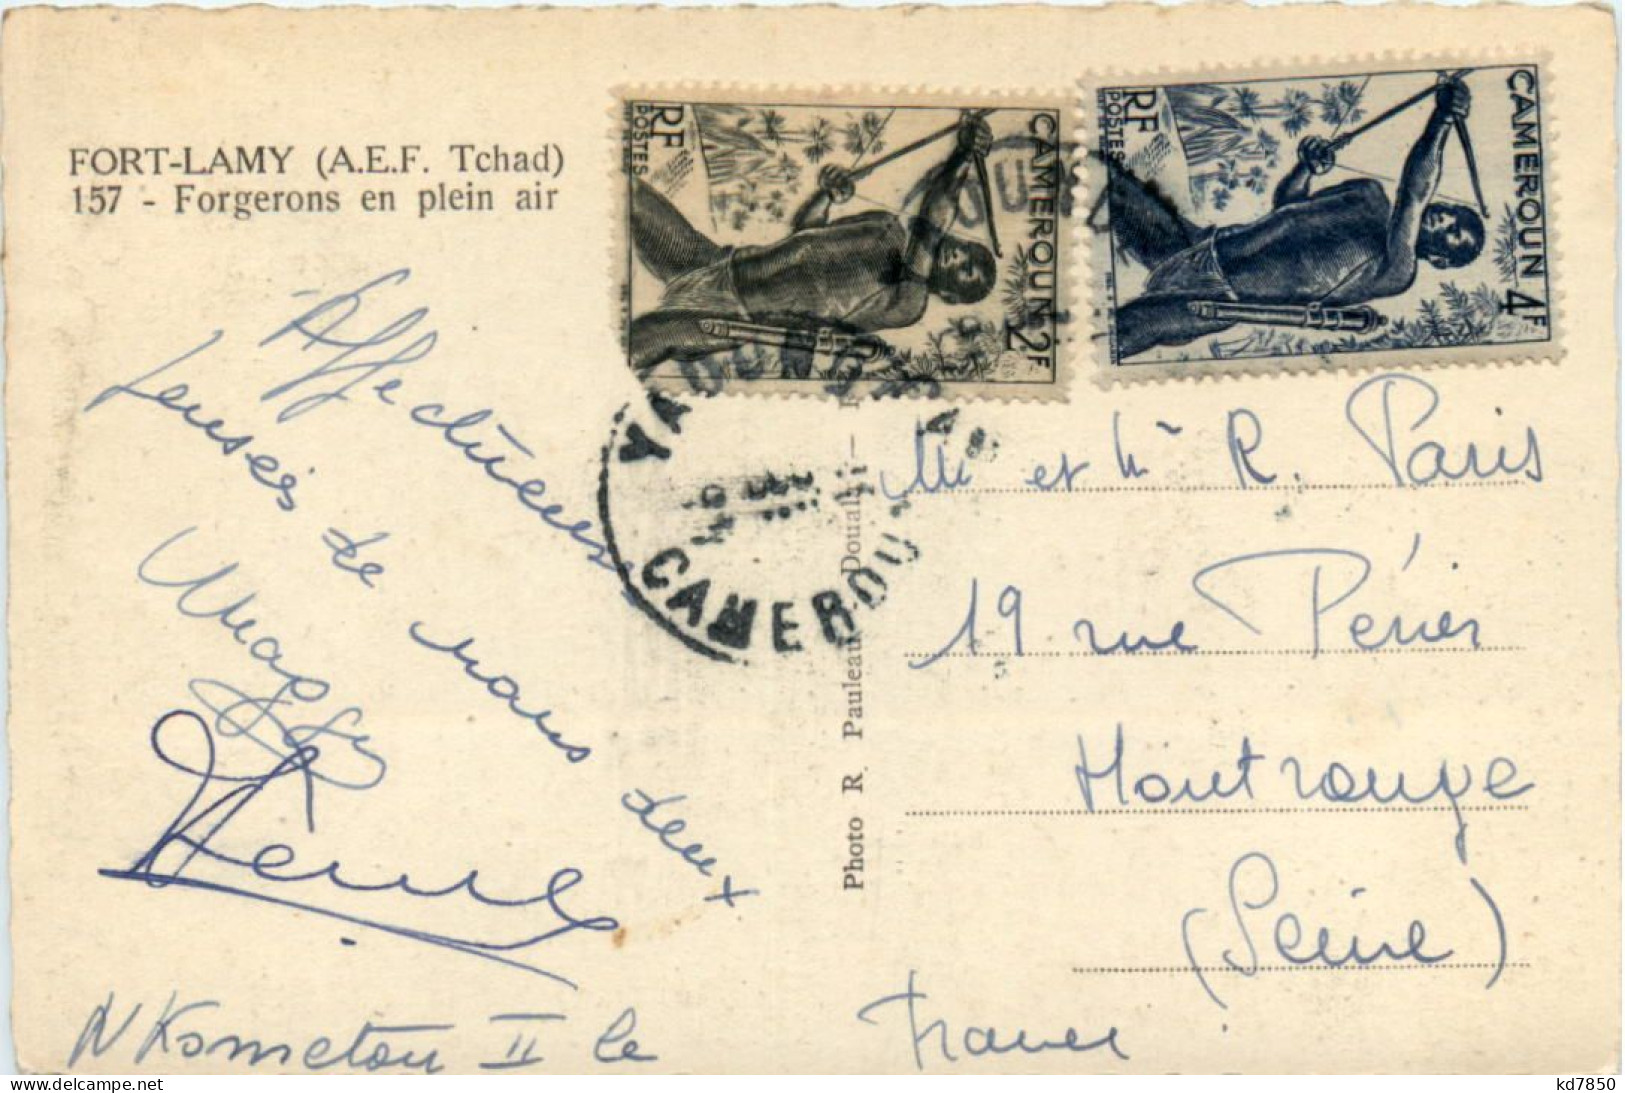 FORT-LAMY (A.E.F. Tchad)
157 - Forgerons en plein air
RF
POSTES
CAMEROUN 2F
RF
POSTES
CAMEROUN 4F
YAOUNDE
CAMEROUN
Affectueuses
pensées de nous deux
N'Kometou II le
Photo R. Pauleau Douala
Mr et Me R. Paris
19 rue Périer
Montrouge
(Seine)
France
kd7850